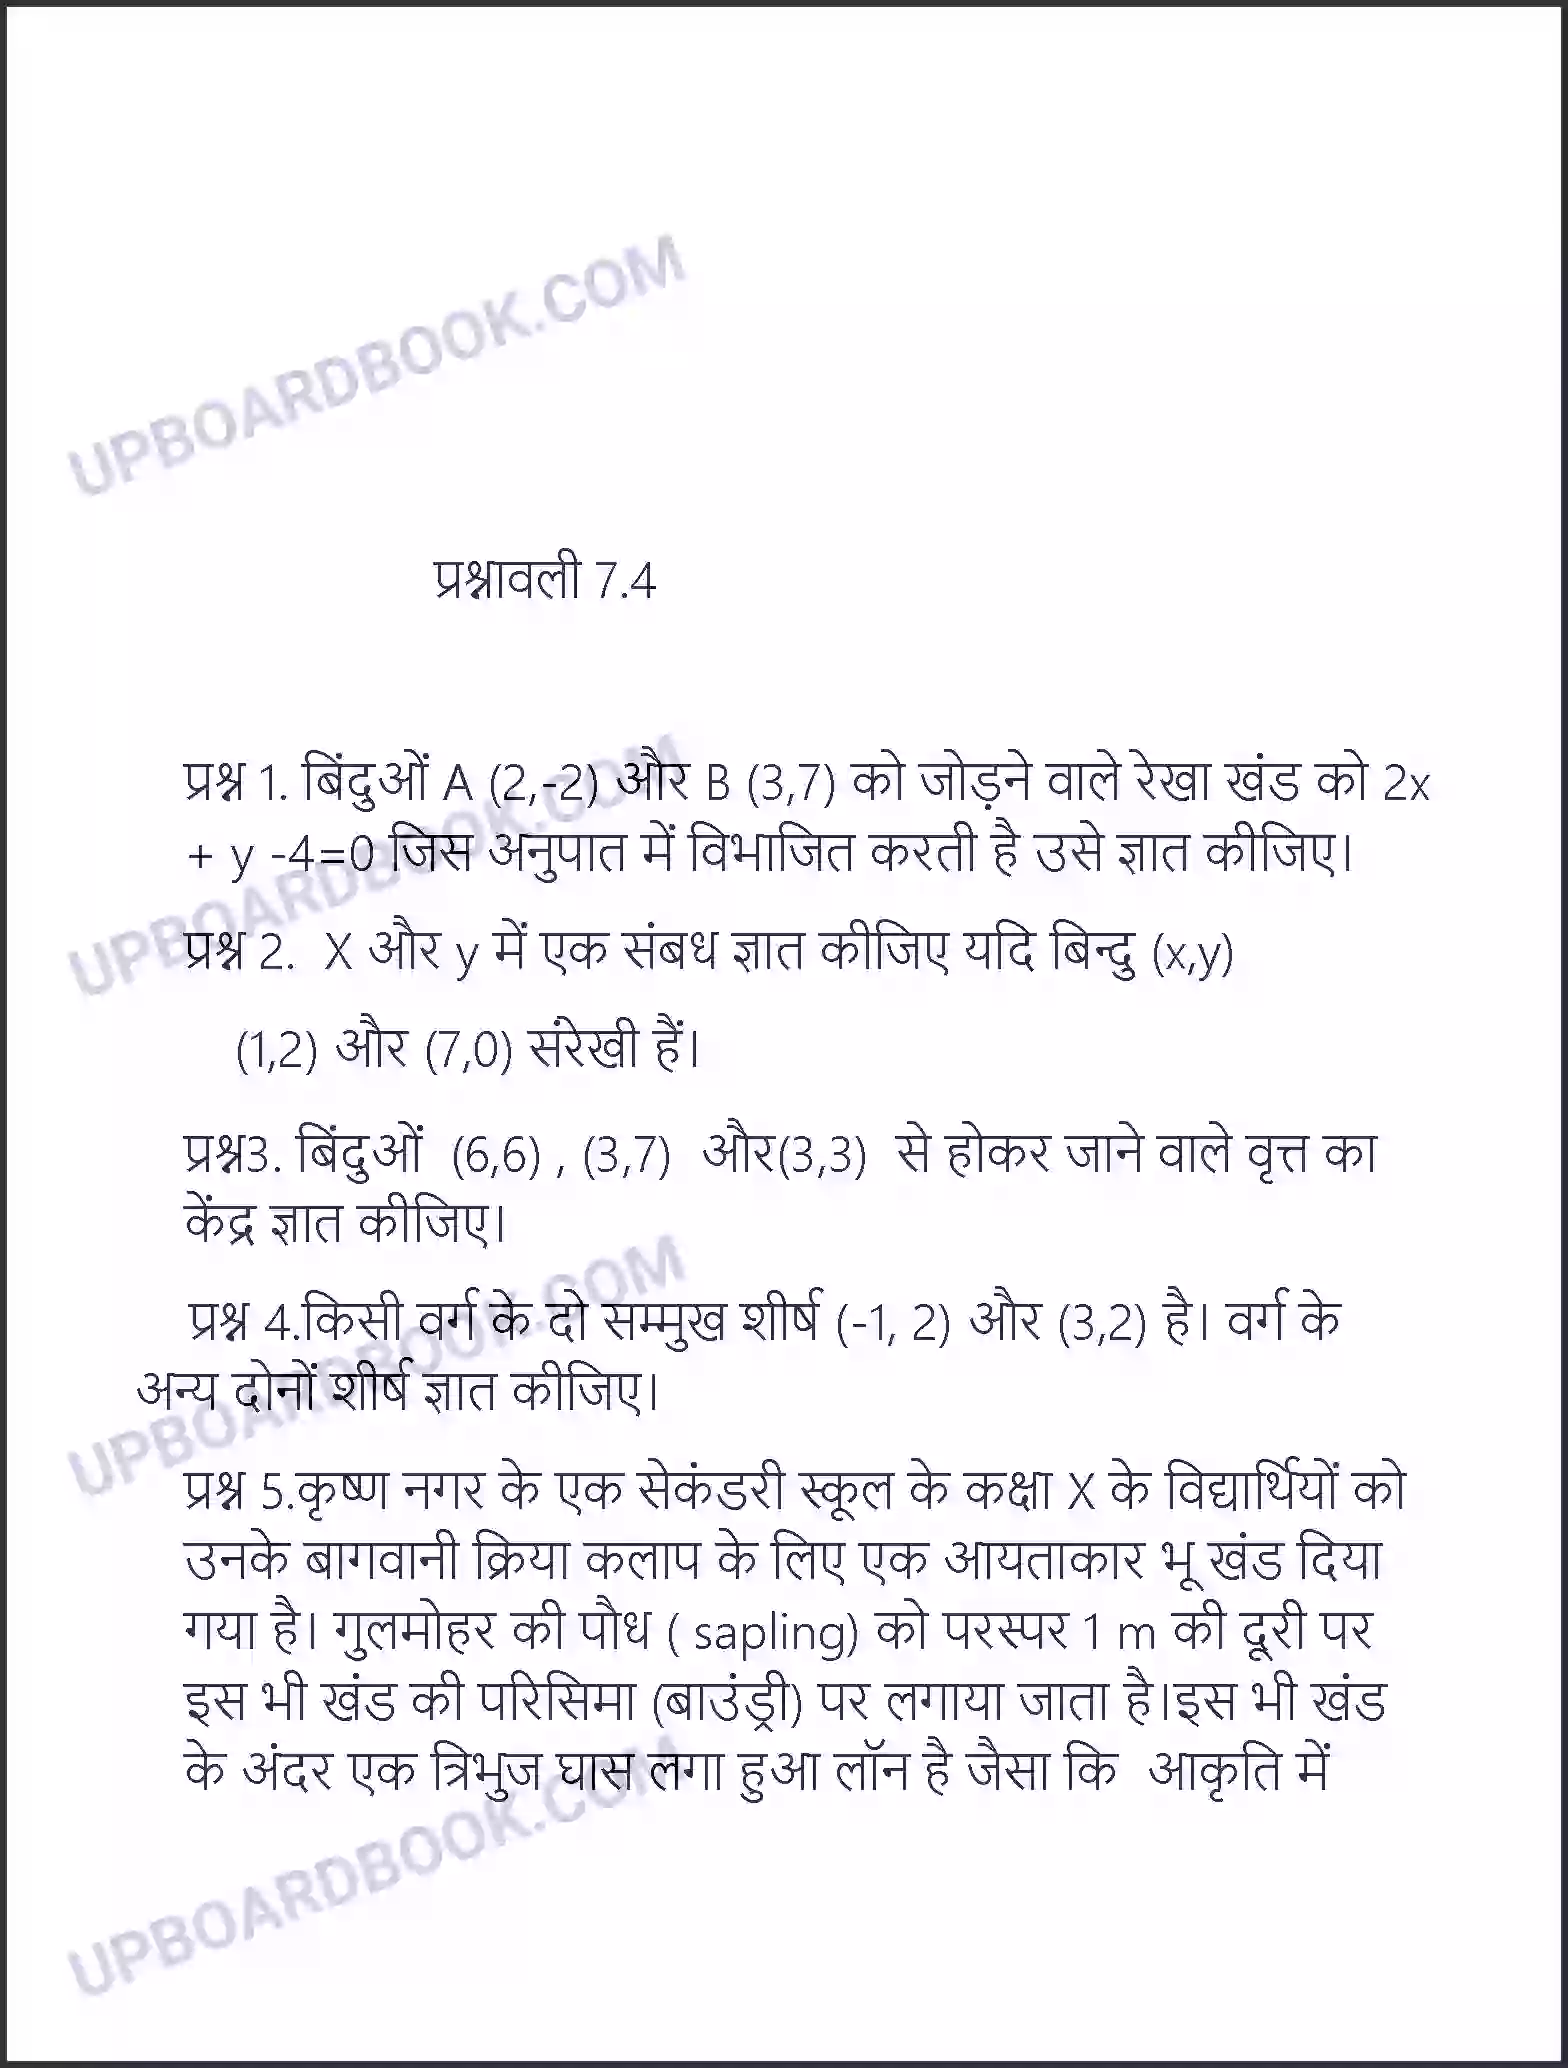 UPBOARDBOOK.COM
प्रश्नावली 7.4
प्रश्न 1. बिंदुओं A (2,-2) और B (3,7) को जोड़ने वाले रेखा खंड को 2x
+ y -4=0 जिस अनुपात में विभाजित करती है उसे ज्ञात कीजिए।
UPBOARDBOOK.COM
प्रश्न 2.  X और y में एक संबध ज्ञात कीजिए यदि बिन्दु (x,y)
(1,2) और (7,0) संरेखी हैं।
प्रश्न3. बिंदुओं  (6,6) , (3,7)  और(3,3)  से होकर जाने वाले वृत्त का
केंद्र ज्ञात कीजिए।
प्रश्न 4.किसी वर्ग के दो सम्मुख शीर्ष (-1, 2) और (3,2) है। वर्ग के
अन्य दोनों शीर्ष ज्ञात कीजिए।
UPBOARDBOOK.COM
प्रश्न 5.कृष्ण नगर के एक सेकंडरी स्कूल के कक्षा X के विद्यार्थियों को
उनके बागवानी क्रिया कलाप के लिए एक आयताकार भू खंड दिया
गया है। गुलमोहर की पौध ( sapling) को परस्पर 1 m की दूरी पर
इस भी खंड की परिसिमा (बाउंड्री) पर लगाया जाता है।इस भी खंड
के अंदर एक त्रिभुज घास लगा हुआ लॉन है जैसा कि  आकृति में
UPBOARDBOOK.COM